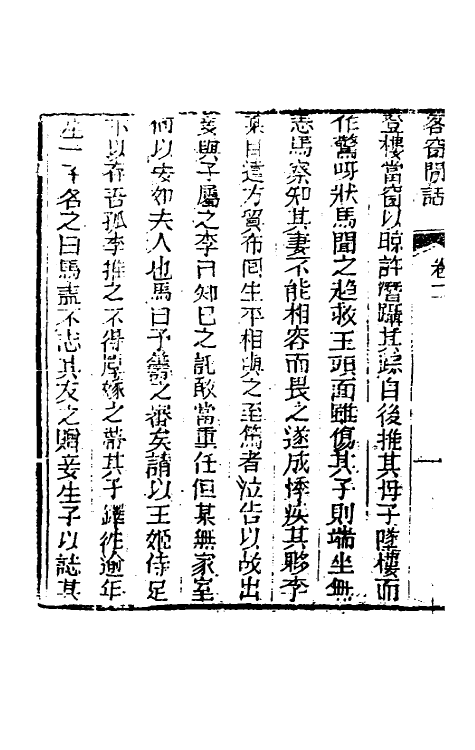 客窗閒話 卷二 一
登樓當窗以晾許潛躡其踪自後推其母子墜樓而
作驚呀狀馬聞之趋救王頭面雖傷其子則端坐無
恙馬察知其妻不能相容而畏之遂成悸疾其夥李
某自遠方貿布囘生平相與之至篤者泣告以故出
妾與子屬之李曰知己之託敢當重任但某無家室
何以安如夫人也馬曰予籌之審矣請以王姬侍足
下以存吾孤李推之不得厚嫁之蔣其子鐸從逾年
生一子名之曰馬誌不忘其友之贈妾生子以誌其